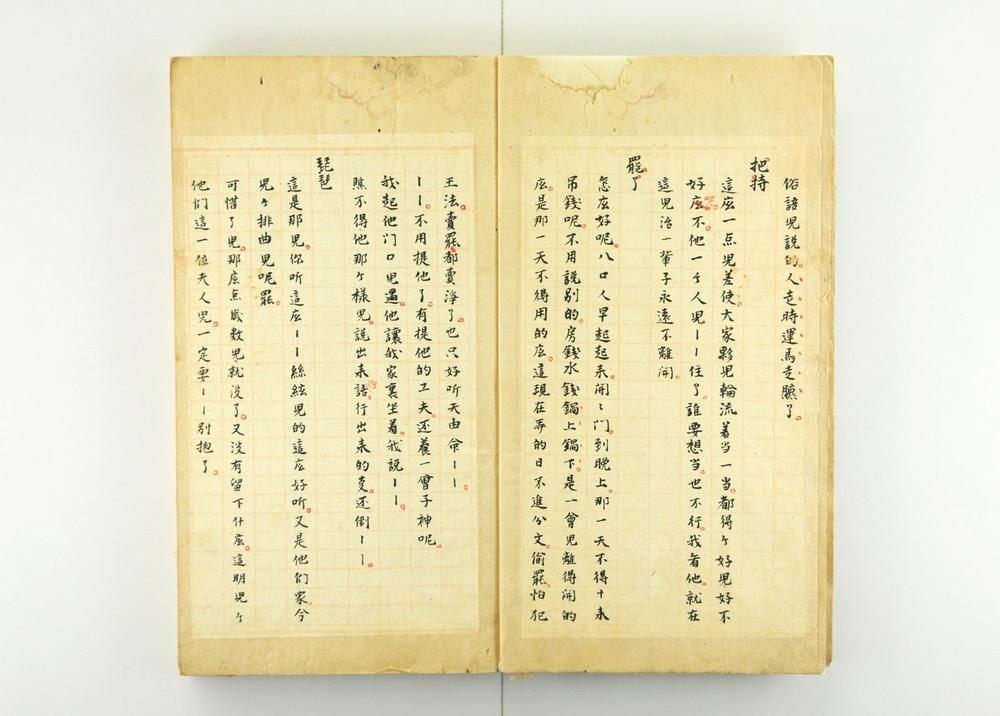 俗語児説的。人走時運馬走驃了。
把持
這庅一点児差使。大家夥児輪流着当一当。都得ケ好児好不
好庅。不。他一ケ人児丨丨住了。誰要想当。也不行。我看他就在
這児治一輩子永遠不離開。
罷了
怎庅好呢。八口人早起起来。開ミ门。到晚上。那一天不得十来
吊錢呢。不用説别的。房錢水錢鍋上鍋下。是一會児離得開的
庅。是那一天不得用的庅。這現在弄的日不進分文。偷罷。怕犯
王法。賣罷。都賣淨了。也只好听天由命丨丨。
丨丨。不用提他了。有提他的工夫。还養一會子神呢。
我起他门口児過。他讓我家裏坐着。我説丨丨。
瞧不得他那ケ樣児。説出来話。行出来的支。还倒丨丨。
琵琶
這是那児。你听這庅丨丨絲絃児的這庅好听。又是他们家。今
児ケ排曲児呢罷。
可惜了児。那庅点歲数児就没了。又没有留下什庅。這明児ケ
他们這一位夫人児。一定要丨丨别抱了。